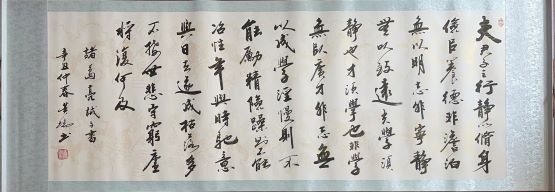 夫君子之行静以脩身
儉以養德非澹泊
無以明志非寧静
無以致遠夫學須
静也才須學也非學
無以廣才非志無
以成學淫慢則不
能勵精險躁則不能
冶性年與時馳意
與日去遂成枯落多
不接世悲守窮廬
將復何及
諸葛亮誡子書
辛丑仲春